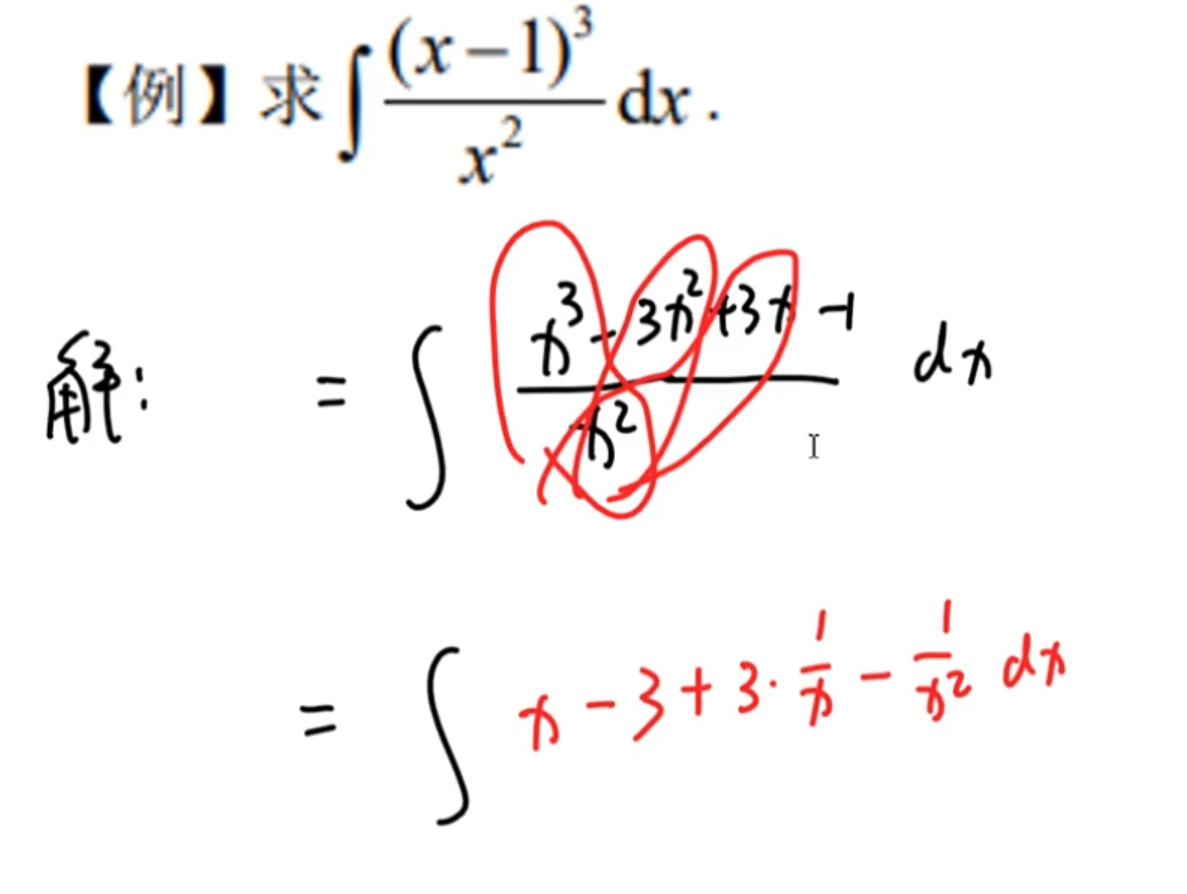 【例】求∫(x−1)³/x² dx.
解: = ∫ (x³−3x²+3x−1)/x² dx
= ∫ x−3+3·1/x−1/x² dx